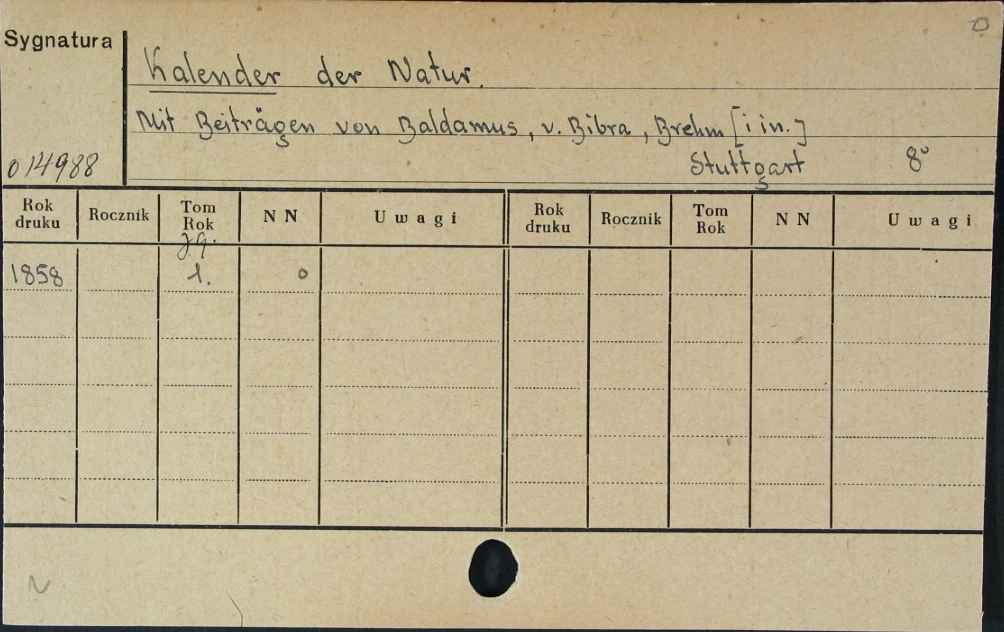 Sygnatura
Kalender der Natur.
Mit Beiträgen von Baldamus, v. Bibra, Brehm [i in.]
014988
Stuttgart 8°
Rok druku Rocznik Tom Rok N N Uwagi Rok druku Rocznik Tom Rok N N Uwagi
Jg.
1858 1. 0
N